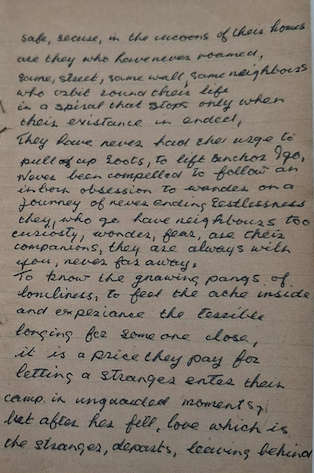 safe, secure, in the cocoons of their homes
are they who have never roamed,
same, street, same wall, same neighbours
who orbit round their life
in a spiral that stops only when
their existance in ended,
They have never had the urge to
pull up roots, to lift anchor & go,
Never been compelled to follow an
inborn obsession to wander on a
journey of never ending restlessness
they, who go have neighbours too
curiosity, wonder, fear, are their
companions, they are always with
you, never far away.
To know the gnawing pangs of
lonliness, to feel the ache inside
and experiance the terrible
longing for some one close,
it is a price they pay for
letting a stranger enter their
camp in unguarded moments,
but after her fill, love which is
the stranger, departs, leaving behind